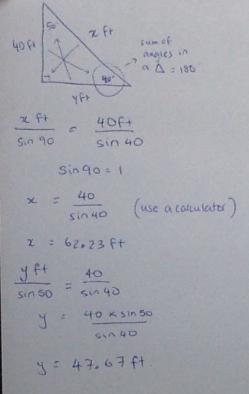 50°
x ft
40ft
sum of
angles in
a Δ = 180
40°
y ft
x ft / sin 90 = 40ft / sin 40
sin 90 = 1
x = 40 / sin 40 (use a calculator)
x = 62.23 ft
y ft / sin 50 = 40 / sin 40
y = 40 x sin 50 / sin 40
y = 47.67 ft